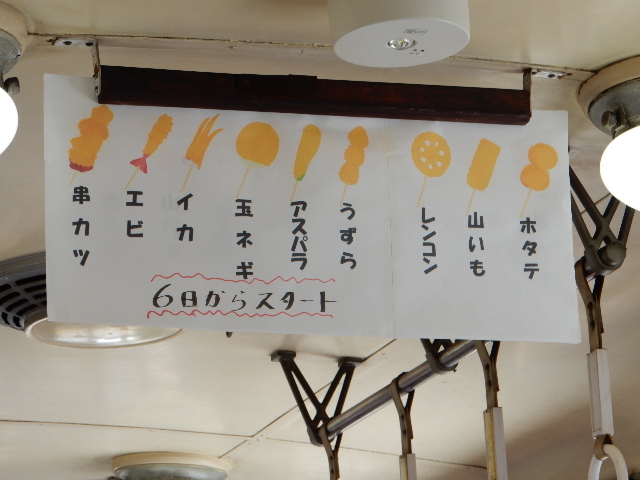 串カツ
エビ
イカ
玉ネギ
アスパラ
うずら
レンコン
山いも
ホタテ
6日からスタート